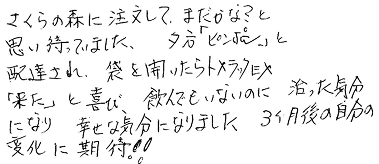 さくらの森に注文して、まだかな?と
思い待っていました、 夕方「ピンポン」と
配達され、袋を開いたらトメラックEX
「来た」と喜び、飲んでもいないのに 治った気分
になり 幸せな気分になりました 3ヶ月後の自分の
変化に期待!!